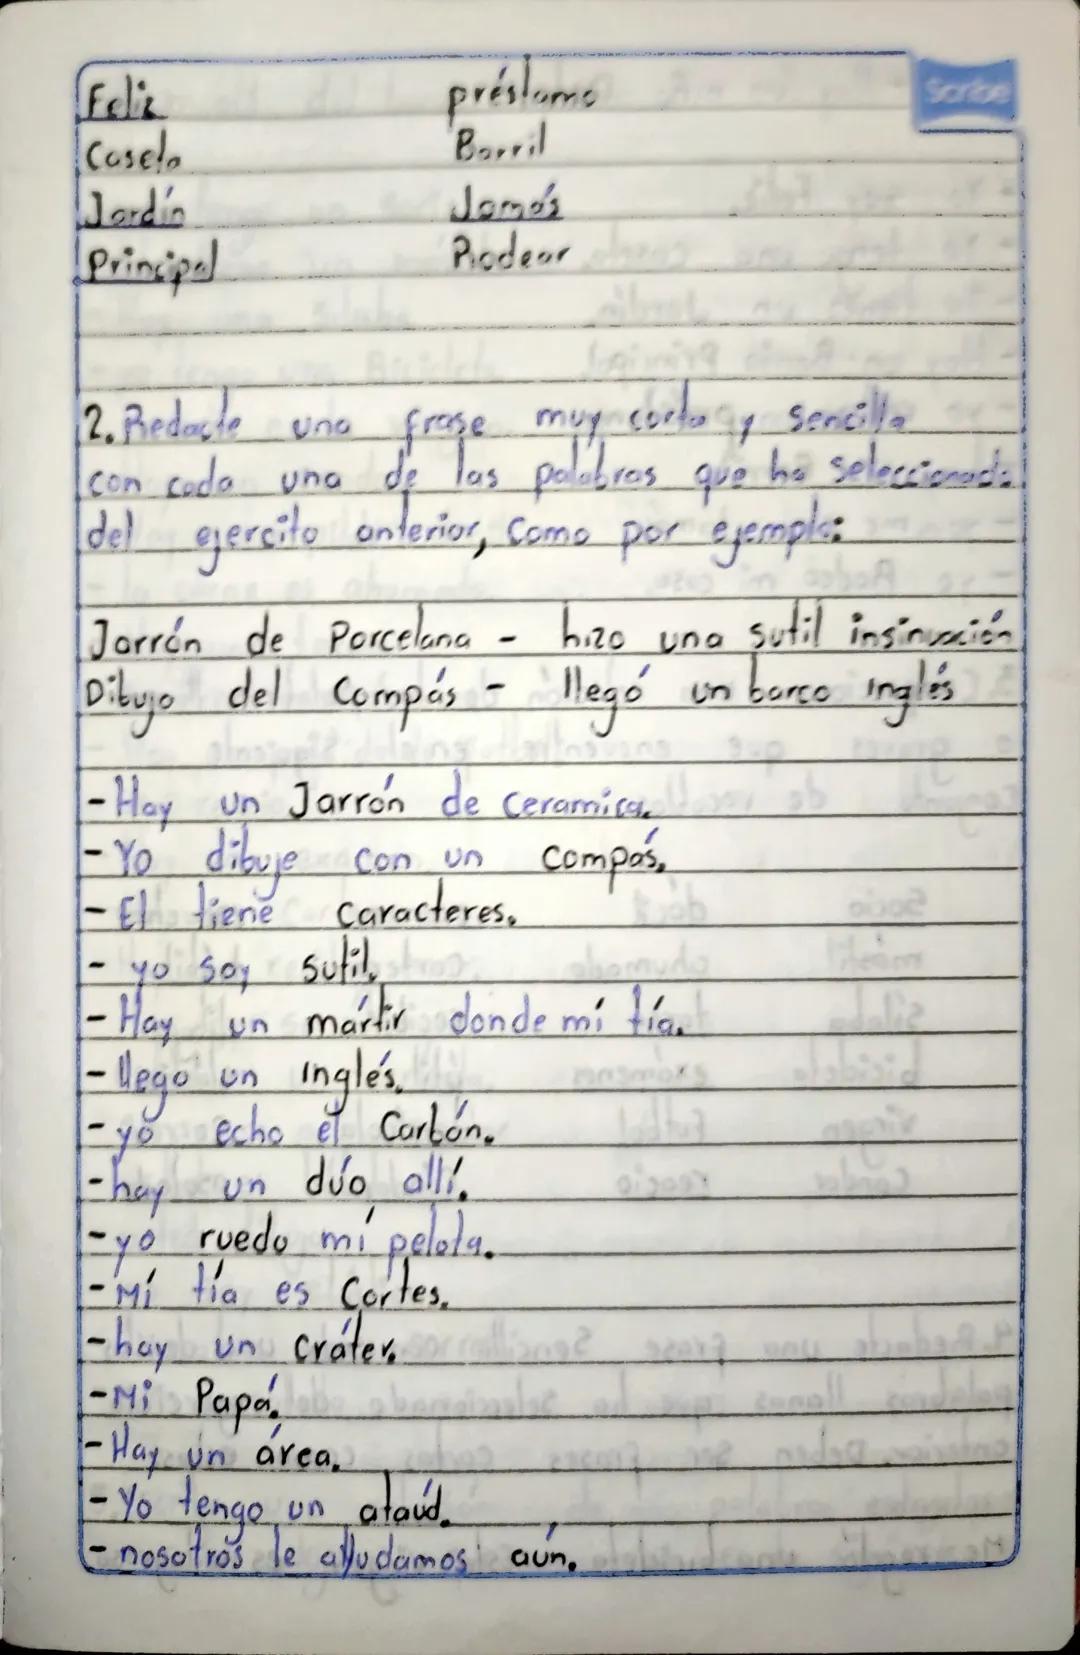 Scribe
Feliz préstamo
Caseta Barril
Jardín Jamás
Principal Rodear
2. Redacte una frase muy corta y sencilla
con cada una de las palabras que ha seleccionado
del ejercito anterior, Como por ejemplo:
Jarrón de Porcelana - hizo una sutil insinuación
Dibujo del Compás - llegó un barco Inglés
- Hay un Jarrón de ceramica.
- Yo dibuje con un compás.
- El tiene caracteres.
- yo soy sutil.
- Hay un mártir donde mí tía.
- llego un Inglés.
- yo echo el Carbón.
- hay un dúo allí.
- yo ruedo mí pelota.
- Mí tía es Cortes.
- hay un cráter.
- Mi Papá.
- Hay un área.
- Yo tengo un ataúd.
- nosotros le alludamos aún.